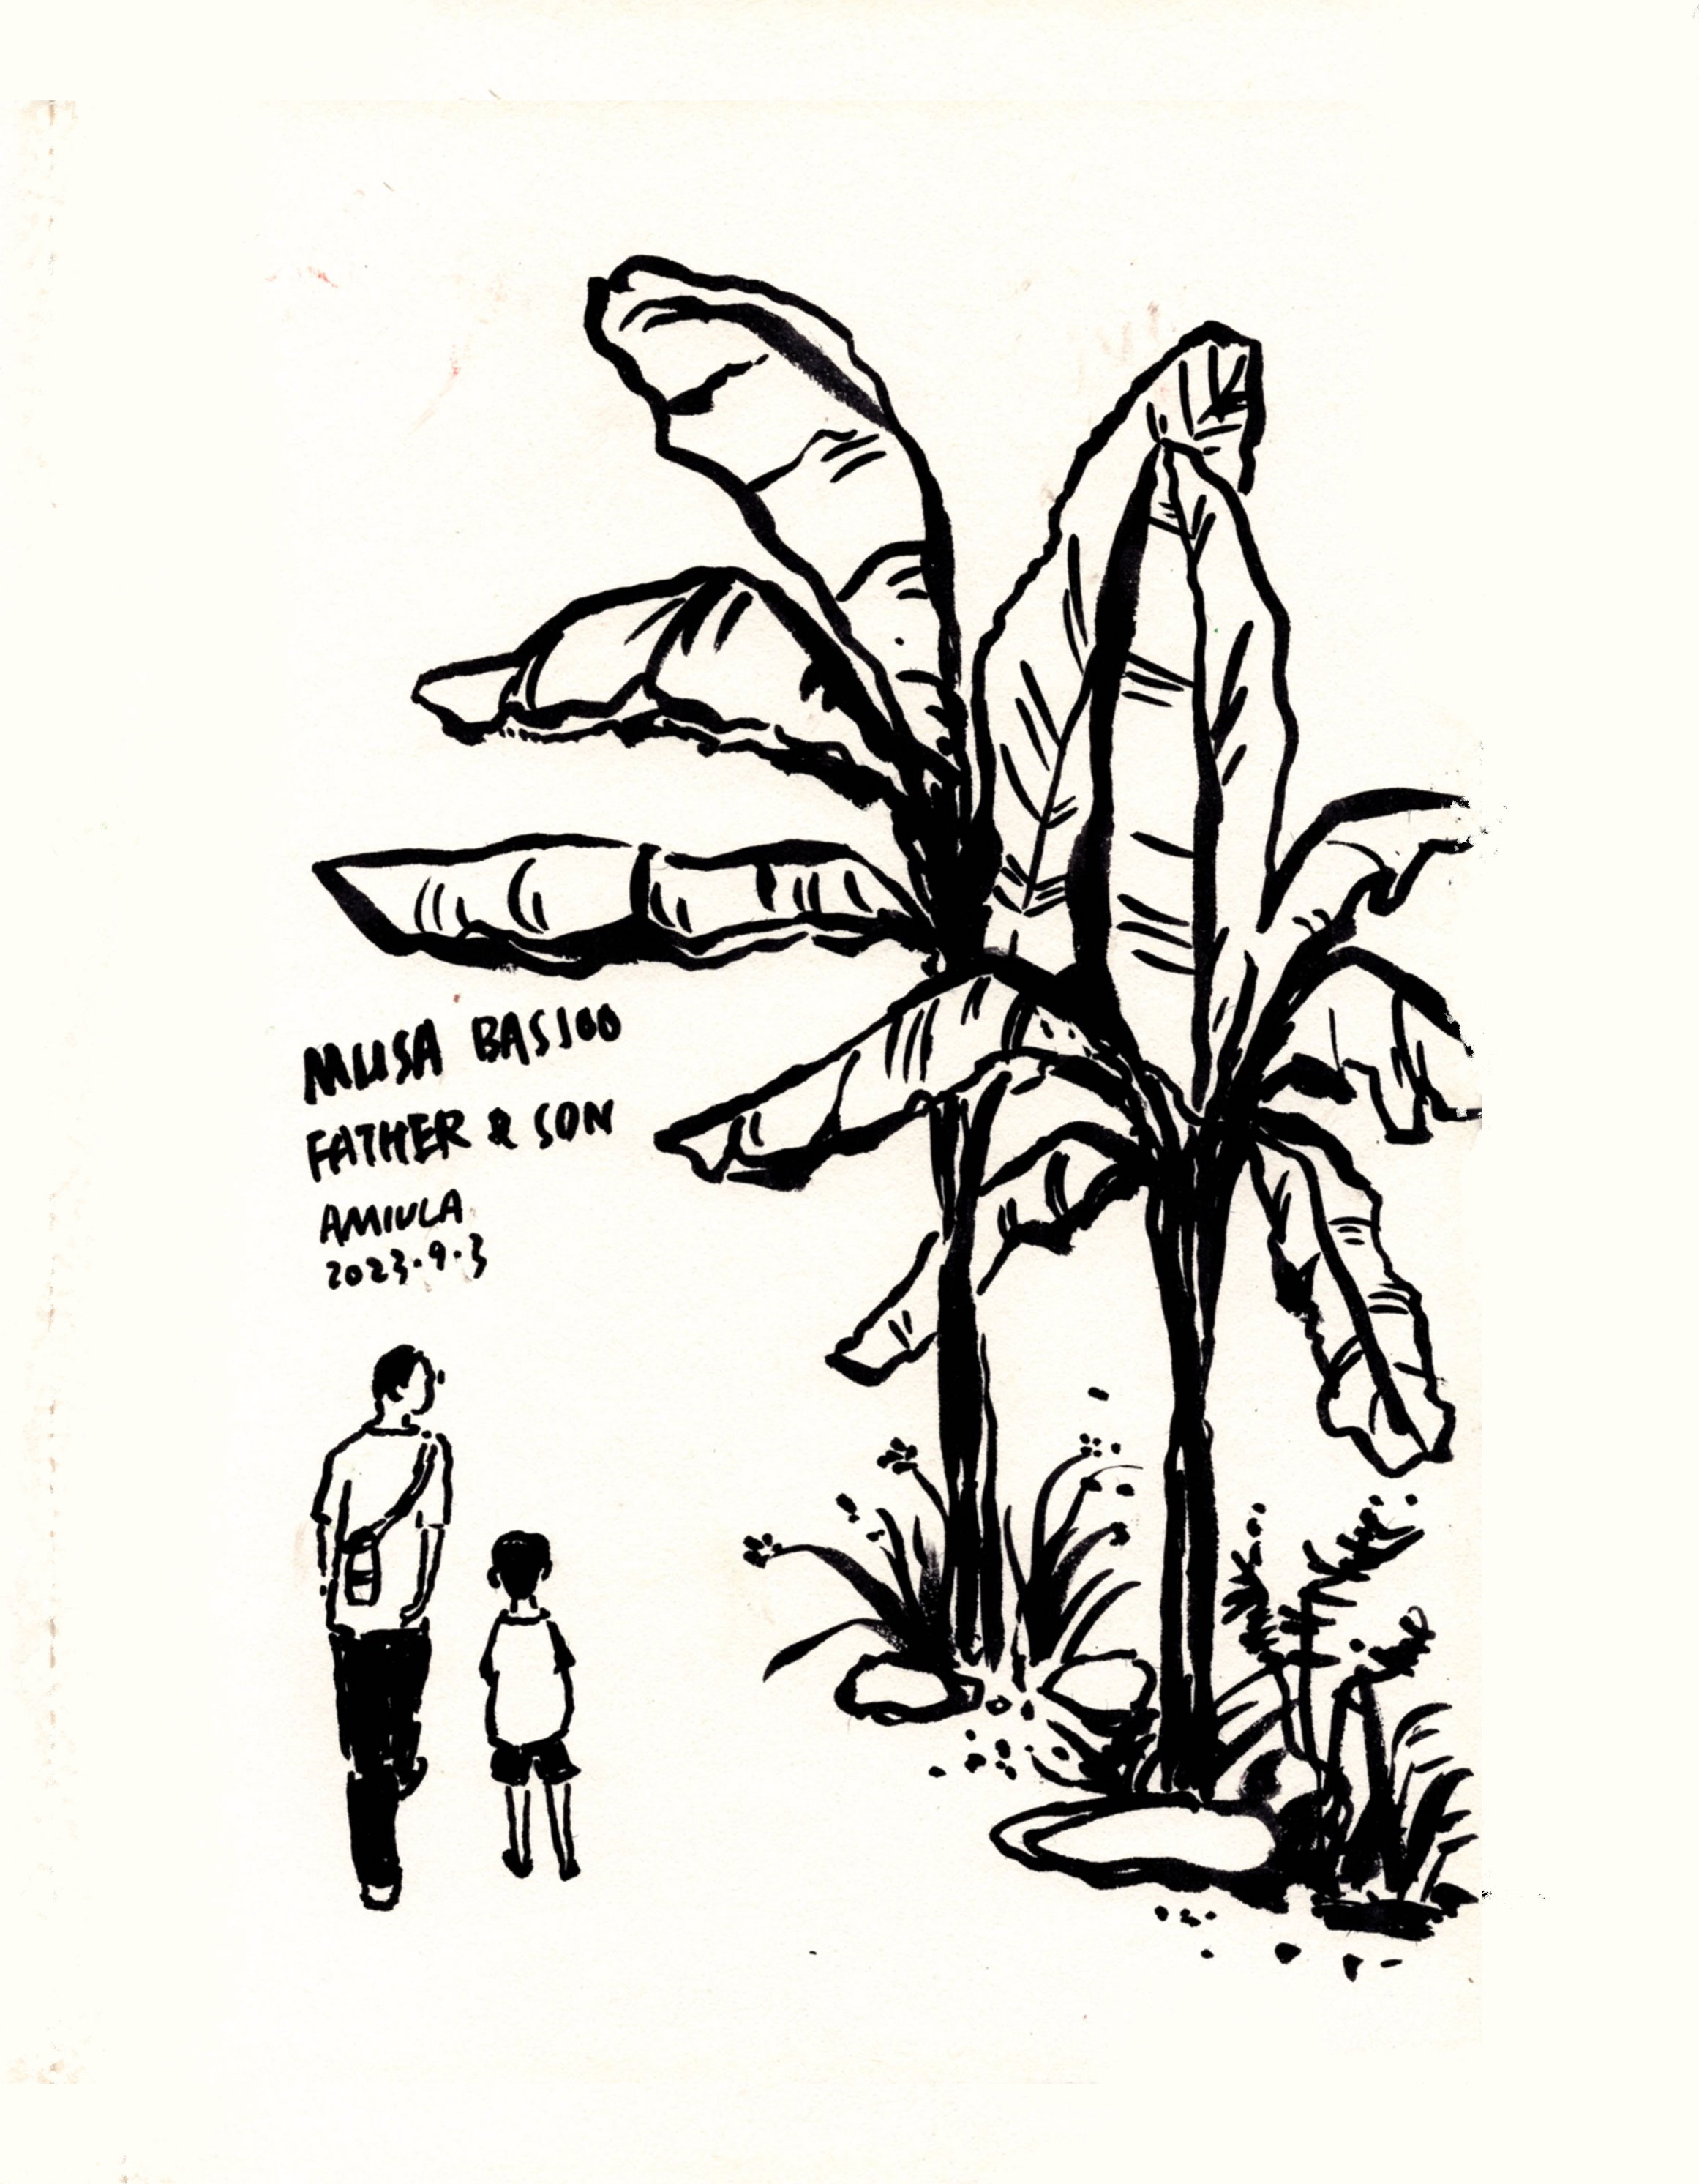 MUSA BASJOO
FATHER & SON
AMIULA
2023.9.3